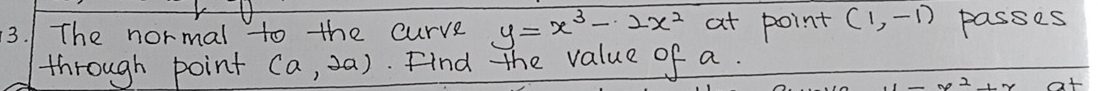 13. The normal to the curve y = x³ - 2x² at point (1, -1) passes
through point (a, 2a). Find the value of a.
y = x² + x at